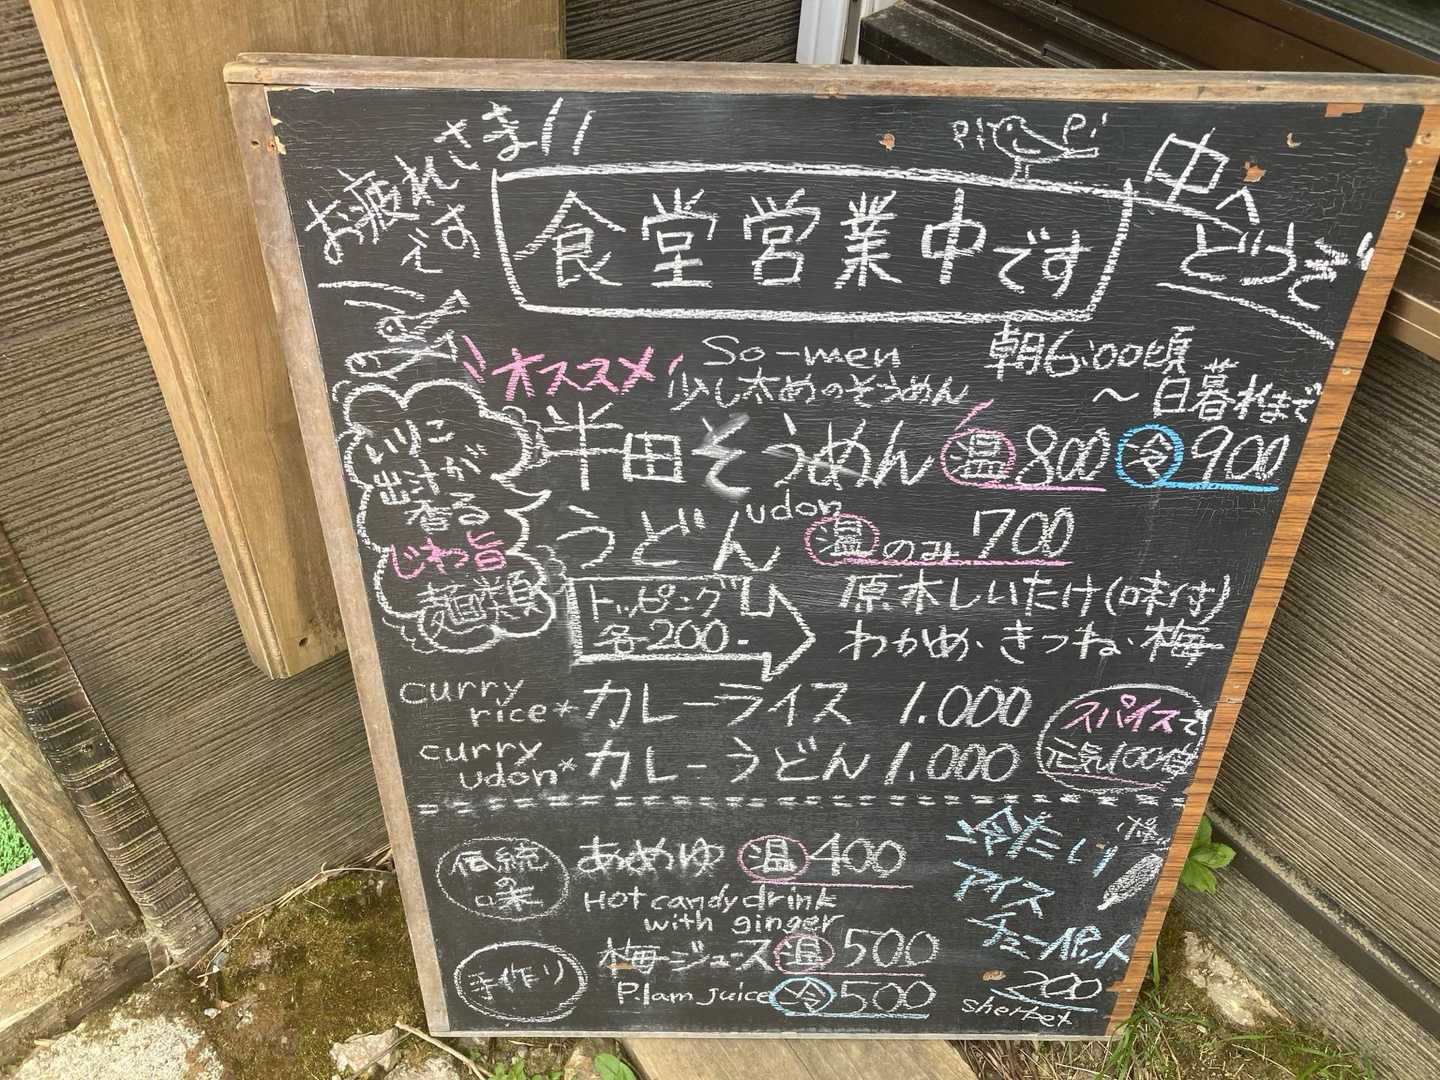 お疲れさま!!
でえす
pi pi
食堂営業中です
中へ
どうぞ
オススメ
So-men
少し太めのそうめん
朝6:00頃
〜日暮れまで
半田そうめん 温 800 冷 900
いりこ
出汁が
香る
じわ旨
麺類
うどん udon 温のみ 700
トッピング
各200-
原木しいたけ(味付)
わかめ・きつね・梅
curry
rice* カレーライス 1.000
curry
udon* カレーうどん 1.000
スパイスで
元気100倍
伝統
の
味
あめゆ 温 400
Hot candy drink
with ginger
手作り
梅ジュース 温 500
P.lam juice 冷 500
冷たい
アイス
チューペット
200
sherbet